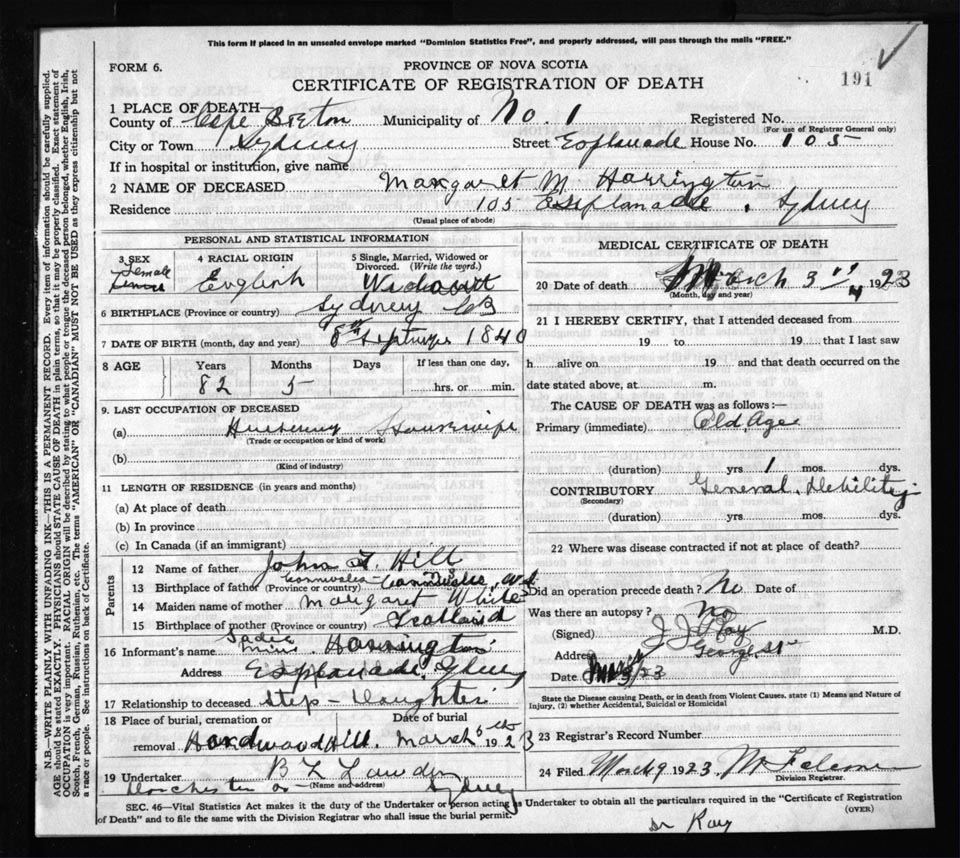 This form if placed in an unsealed envelope marked "Dominion Statistics Free", and properly addressed, will pass through the mails "FREE."
FORM 6.
PROVINCE OF NOVA SCOTIA
CERTIFICATE OF REGISTRATION OF DEATH
191
1 PLACE OF DEATH—
County of Cape Breton Municipality of No. 1 Registered No.
(For use of Registrar General only)
City or Town Sydney Street Esplanade House No. 105
If in hospital or institution, give name
2 NAME OF DECEASED Margaret M Harrington
Residence 105 Esplanade . Sydney
(Usual place of abode)
PERSONAL AND STATISTICAL INFORMATION
3 SEX 4 RACIAL ORIGIN 5 Single, Married, Widowed or Divorced. (Write the word.)
Female English
6 BIRTHPLACE (Province or country) Sydney CB
7 DATE OF BIRTH (month, day and year) 8th September 1840
8 AGE Years Months Days If less than one day,
82 5 hrs. or min.
9. LAST OCCUPATION OF DECEASED
(a) Housewife
(Trade or occupation or kind of work)
(b)
(Kind of industry)
11 LENGTH OF RESIDENCE (in years and months)
(a) At place of death
(b) In province
(c) In Canada (if an immigrant)
Parents
12 Name of father John L. Hill
13 Birthplace of father (Province or country)
14 Maiden name of mother Margaret White
15 Birthplace of mother (Province or country) Scotland
16 Informant's name Sadie Harrington
Address Esplanade Sydney
17 Relationship to deceased Step-Daughter
18 Place of burial, cremation or Date of burial
removal Hardwood Hill. March 6th 1923
19 Undertaker B L
(Name and address)
Dorchester Sydney
MEDICAL CERTIFICATE OF DEATH
20 Date of death March 3rd 1923
(Month, day and year)
21 I HEREBY CERTIFY, that I attended deceased from
19 to 19 that I last saw
h alive on 19 and that death occurred on the
date stated above, at m.
The CAUSE OF DEATH was as follows:—
Primary (immediate) Old Age
(duration) yrs 1 mos. dys.
CONTRIBUTORY General Debility
(Secondary)
(duration) yrs. mos. dys.
22 Where was disease contracted if not at place of death?
Did an operation precede death? No Date of
Was there an autopsy? No
(Signed) J J Roy M.D.
Address George St
Date 23
State the Disease causing Death, or in death from Violent Causes, state (1) Means and Nature of Injury, (2) whether Accidental, Suicidal or Homicidal
23 Registrar's Record Number
24 Filed March 9 1923
Division Registrar.
SEC. 46—Vital Statistics Act makes it the duty of the Undertaker or person acting as Undertaker to obtain all the particulars required in the "Certificate of Registration
of Death" and to file the same with the Division Registrar who shall issue the burial permit.
(OVER)
Dr Roy
N.B.—WRITE PLAINLY, WITH UNFADING INK.—THIS IS A PERMANENT RECORD. Every item of information should be carefully supplied.
AGE should be stated EXACTLY. PHYSICIANS should STATE CAUSE OF DEATH in plain terms, so that it may be properly classified. Exact statement of
OCCUPATION is very important. RACIAL ORIGIN will be described by stating to what people or tongue the deceased person belonged, whether English, Irish,
Scotch, French, German, Russian, Ruthenian, etc. The terms "AMERICAN" OR "CANADIAN" MUST NOT BE USED as they express citizenship but not
a race or people. See instructions on back of Certificate.